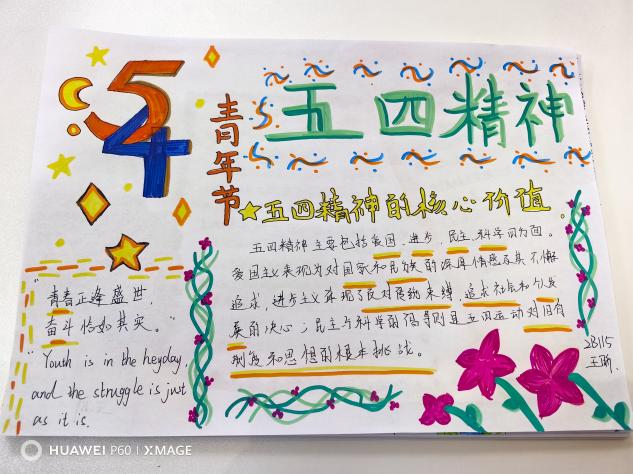 54
青年节
五四精神
五四精神的核心价值
五四精神主要包括爱国、进步、民主、科学四方面。
爱国主义表现为对国家和民族的深厚情感及其不懈
追求，进步主义体现了反对传统束缚，追求社会和个人发
展的决心；民主与科学的倡导则是五四运动对旧有
制度和思想的根本挑战。
"青春正逢盛世，
奋斗恰如其实。"
"Youth is in the heyday,
and the struggle is just
as it is.
2B115
王
HUAWEI P60 | XMAGE